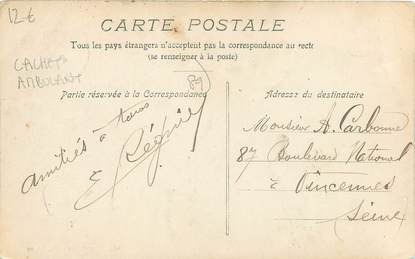 12-€
CARTE POSTALE
Tous les pays étrangers n'acceptent pas la correspondance au recto
(se renseigner à la poste)
CACHET
AMBULANT
89
Partie réservée à la Correspondance
Adresse du destinataire
amitiés à tous
E Régnier
Monsieur A. Carbonne
87 Boulevard National
à Vincennes
Seine